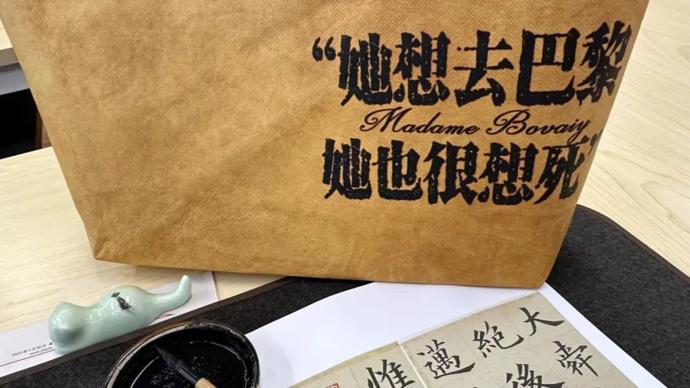 “她想去巴黎
Madame Bovaiy
她也很想死”
大舜
絕後
邁
惟